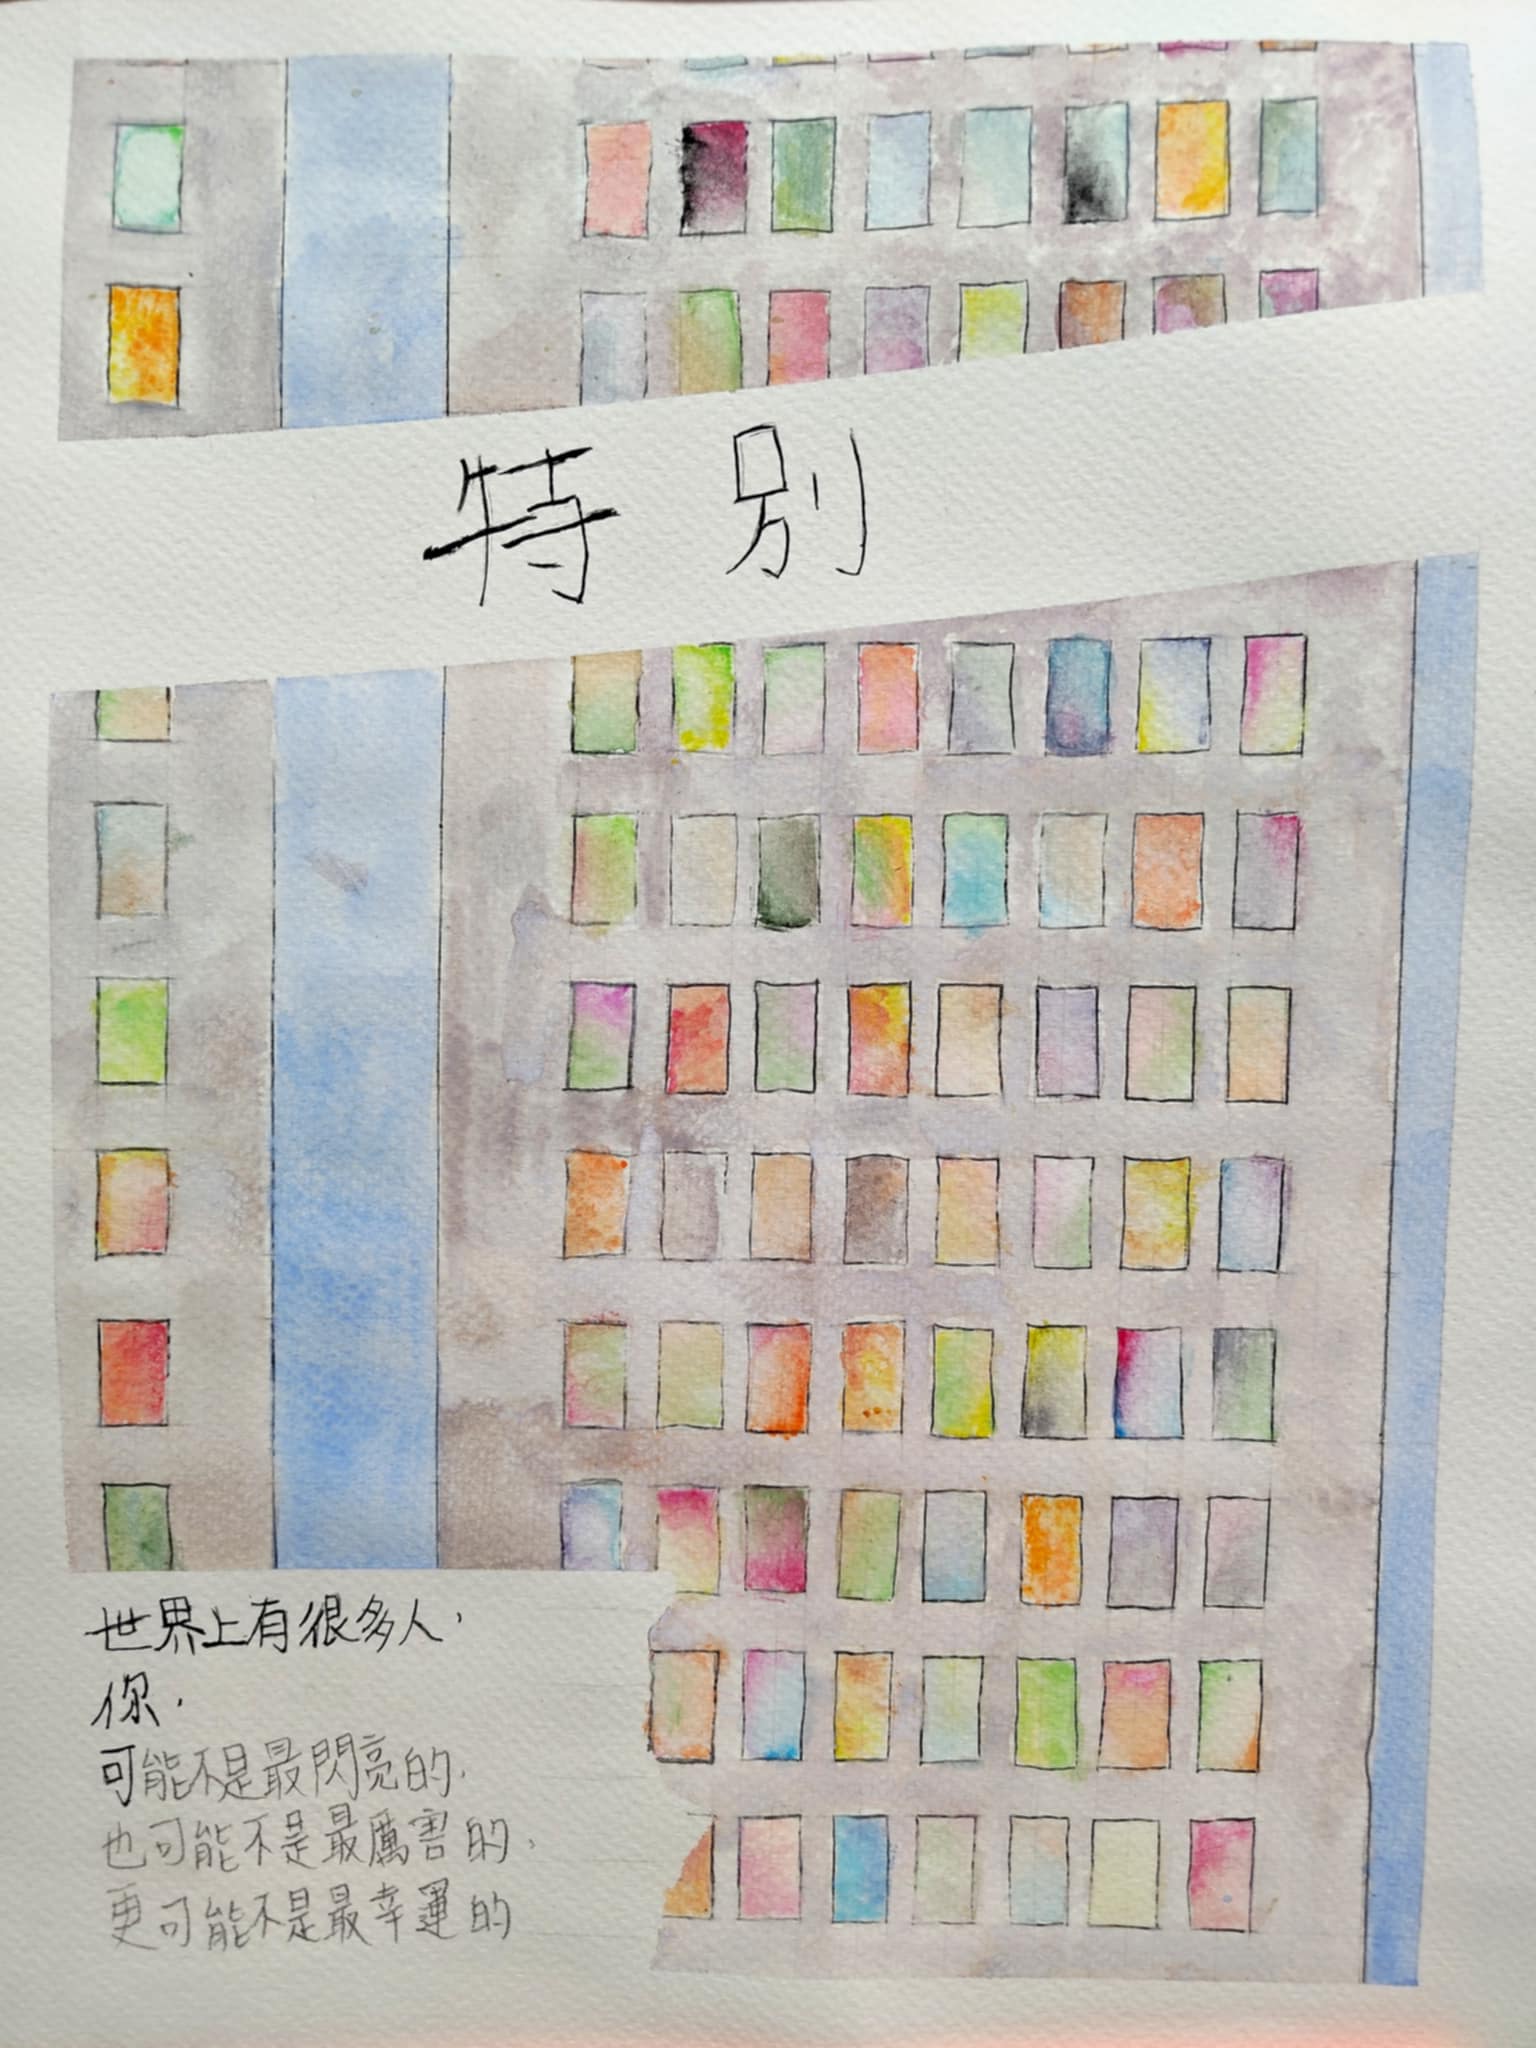 特別
世界上有很多人，
你，
可能不是最閃亮的，
也可能不是最厲害的，
更可能不是最幸運的